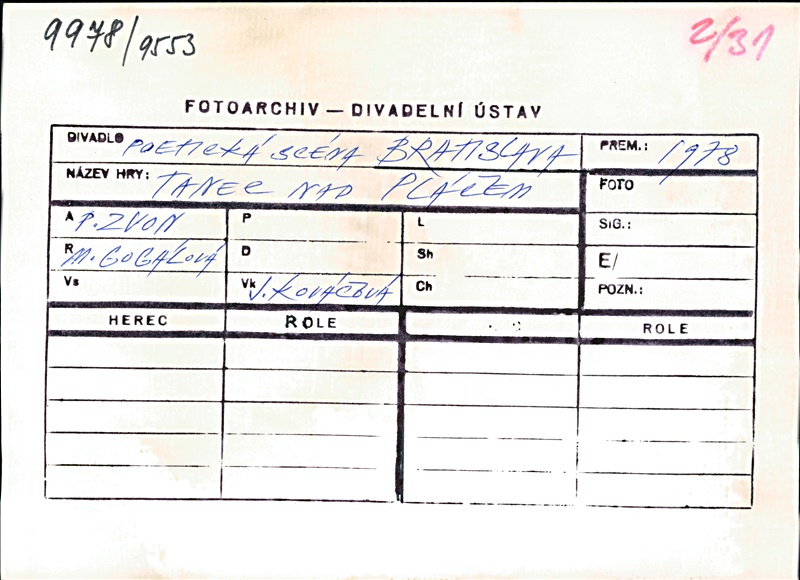 9978/9553
2/31
FOTOARCHIV — DIVADELNÍ ÚSTAV
DIVADLO POETICKÁ SCÉNA BRATISLAVA PREM.: 1978
NÁZEV HRY: TANEC NAD PLÁČEM FOTO
A P. ZVON P L SIG.:
R M. GOGÁLOVÁ D Sh E/
Vs Vk J. KOVÁČOVÁ Ch POZN.:
HEREC ROLE ROLE